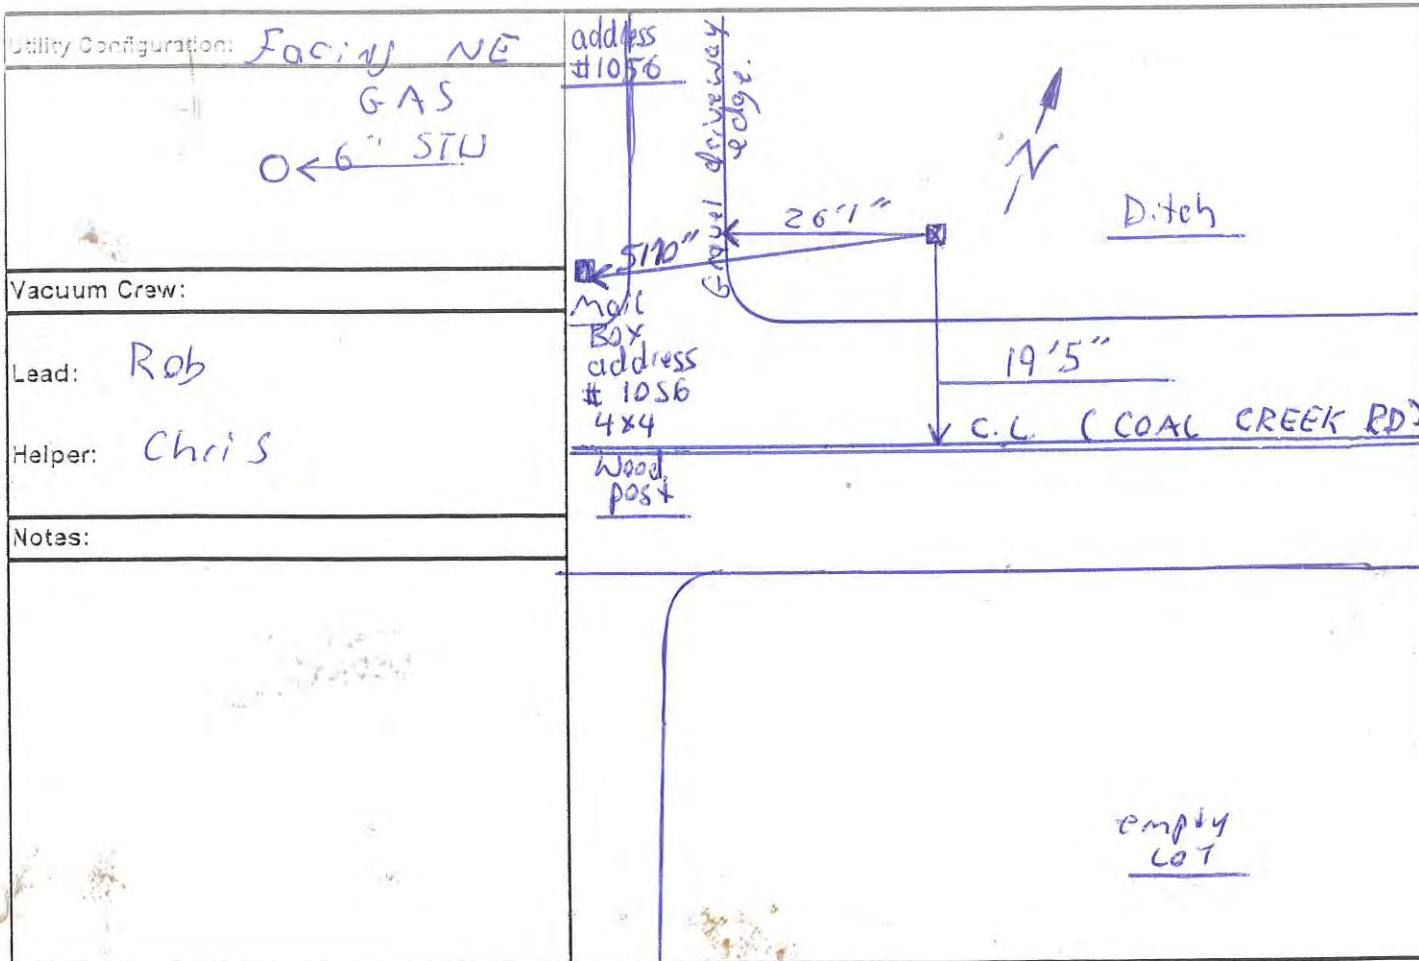 Utility Configuration: Facing NE
GAS
6" STW
Vacuum Crew:
Lead: Rob
Helper: Chris
Notes:
address
#1056
Gravel driveway
edge.
N
Ditch
26'1"
51'10"
Mail
Box
address
# 1056
4x4
Wood
post
19'5"
C.L. (COAL CREEK RD)
empty
LOT